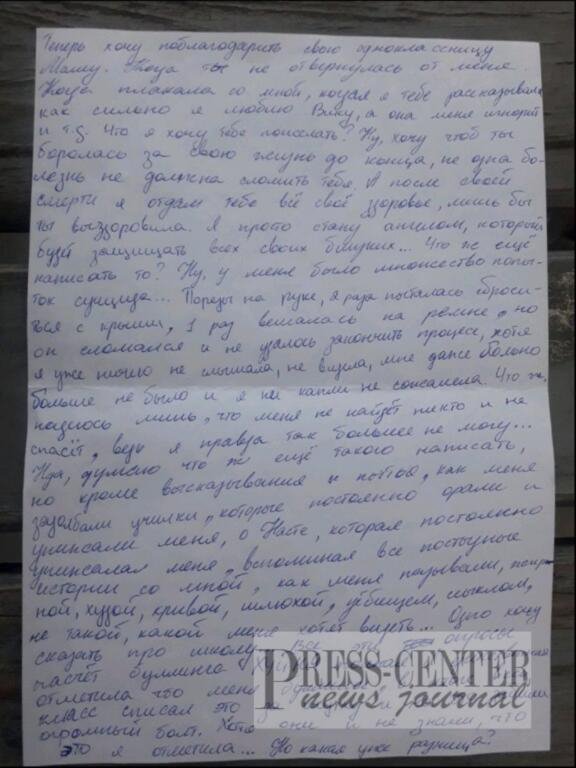 Теперь хочу поблагодарить свою одноклассницу
Машу. Тогда ты не отвернулась от меня.
Тогда плакала со мной, когда я тебе рассказывала
как сильно я люблю Вику, а она меня игнорит
и т.д. Что я хочу тебе пожелать? Ну, хочу чтоб ты
боролась за свою жизнь до конца, не одна бо-
лезнь не должна сломить тебя. А после своей
смерти я отдам тебе всё своё здоровье, лишь бы
ты выздоровила. Я просто стану ангелом, который
будет защищать всех своих близких... Что же ещё
написать то? Ну, у меня было множество попы-
ток суицида... Порезы на руке, я раза пыталась сброси-
ться с крыши, 1 раз вешалась на ремне, но
он сломался и не удалось закончить процесс, хотя
я уже ничего не слышала, не видела, мне даже больно
больше не было и я ни капли не сожалела. Что ж,
надеюсь лишь, что меня не найдёт никто и не
спасёт, ведь я правда так больше не могу...
Нда, думаю что же ещё такого написать,
но кроме высказывания и о том, как меня
задолбали училки, которые постоянно орали и
унижали меня, о Насте, которая постоянно
унижала меня, вспоминая все постыдные
истории со мной, как меня называли,
ной, худой, кривой, шлюхой, убищем,
не такой, какой меня хотят видеть... Одно хочу
сказать про школу. Все эти опросы
насчёт буллинга
отметила что меня
класс списал это за
огромный болт. Хотя они и не знали, что
это я отметила... Но какая уже разница?
PRESS-CENTER
news journal